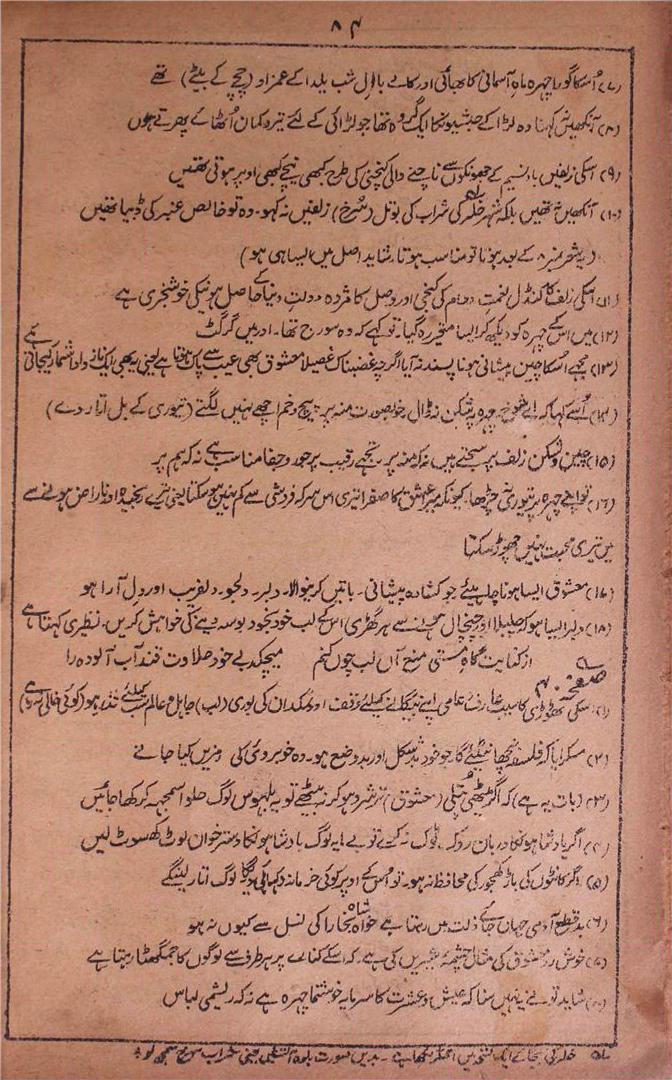 ۸۴
(۷) اُسکا گورا چہرہ ماہِ آسمانی کا بھائی اور کالے بال اول شب یلدا کے عمزاد (چچے کے بیٹے) تھے
(۸) آنکھیں تھیں کہنا وہ لڑاکے حبشیونکا ایک گروہ تھا جو لڑائی کے لئے تیر و کمان اُٹھائے پھرتے ہوں
(۹) اسکی زلفیں باد نسیم کے جھونکوں سے ناچنے والی کنچنی کی طرح کبھی نیچے کبھی اوپر ہوتی تھیں
(۱۰) آنکھیں نہ تھیں بلکہ شہر خلّر کی شراب کی بوتل (سُرخ) زلفیں نہ کہو۔ وہ تو خالص عنبر کی ڈبیا تھیں
(یہ شعر نمبر ۸ کے بعد ہونا تو مناسب ہوتا۔ شاید اصل میں ایسا ہی ہو)
(۱۱) اسکی زلف کا کنڈل نعمتِ دوام کی کنجی اور وصل کا مژدہ دولتِ دنیا کے حاصل ہونیکی خوشخبری ہے
(۱۲) میں اس کے چہرہ کو دیکھ کر ایسا متحیر رہ گیا۔ تو کہے کہ وہ سورج تھا۔ اور میں گرگٹ
(۱۳) مجھے اُسکا چین پیشانی ہونا پسند نہ آیا اگرچہ غضبناک غصیلا معشوق بھی عیب سے پاک ہوتا ہے یعنی یہ بھی ایک ناز و ادا شمار کیجاتی ہے
(۱۴) اُسے کہا کہ اے شوخ۔ چہرہ پر شکن نہ ڈال خوبصورت منہ پر پیچ و خم اچھے نہیں لگتے (تیوری کے بل اتار دے)
(۱۵) چین و شکن زلف پر سجتے ہیں نہ کہ منہ پر تجھے رقیب پر جور و جفا مناسب ہے نہ کہ ہم پر
(۱۶) تو اپنے چہرہ پر تیوری نہ چڑھا۔ کیونکہ میرے عاشق کا صفرا تیری اس سرکہ فروشی سے کم نہیں ہو سکتا یعنی تیرے رنجیدہ اور ناراض ہونے سے
میں تیری محبت نہیں چھوڑ سکتا
(۱۷) معشوق ایسا ہونا چاہیئے جو کشادہ پیشانی۔ باتیں کرنیوالا۔ دلبر۔ دلجو۔ دلفریب اور دل آرا ہو
(۱۸) دلبر ایسا ہو کہ چلبلا اور چنچال ہونے سے ہر گھڑی اس کے لب خود بخود بوسہ دینے کی خواہش کریں۔ نظیری کہتا ہے
از کنایت گاہِ مستی منع آں لب چوں کنم     میچکد بے خود حلاوت قند آب آلودہ را
صفحہ ۹
(۱) اسکی ٹھوڑی کا سیب عارف عامی اپنے بیگانے کیلئے وقف اور نمکدان کی بوری (لب) جاہل و عالم سب کیلئے نذر ہو (کوئی خالی نہ رہے)
(۲) مسکرایا کہ فلسفہ چھانٹنے لگا جو خود بد شکل اور بد وضع ہو۔ وہ خوبروئی کی رمزیں کیا جانے
(۳) (بات یہ ہے) کہ اگر میٹھی پتلی (معشوق) ترشرو ہو کر نہ بیٹھے تو یہ بلہوس لوگ حلوا سمجھ کر کھا جائیں
(۴) اگر بادشاہونکا دربان روک۔ ٹوک نہ کرے تو بے مایہ لوگ بادشاہونکا دسترخوان لوٹ کھسوٹ لیں
(۵) اگر کانٹوں کی باڑ کھجور کی محافظ نہ ہو۔ تو اس کے اوپر کوئی خرما نہ دکھائی دیگا لوگ اتار لینگے
(۶) بد قطع آدمی جہاں جائے ذلت میں رہتا ہے خواہ شاہ بخارا کی نسل سے کیوں نہ ہو
(۷) خوش رو معشوق کی مثال چشمۂ شیریں کی ہے۔ کہ اسکے کنارے پر ہر طرف سے لوگوں کا جمگھٹا رہتا ہے
(۸) شاید تو نے یہ نہیں سنا کہ عیش و عشرت کا سرمایہ خوشنما چہرہ ہے نہ کہ ریشمی لباس
خلر کی بجائے ایک نسخہ میں احمر لکھا ہے۔ بدیں صورت شراب سرخ سمجھ لو